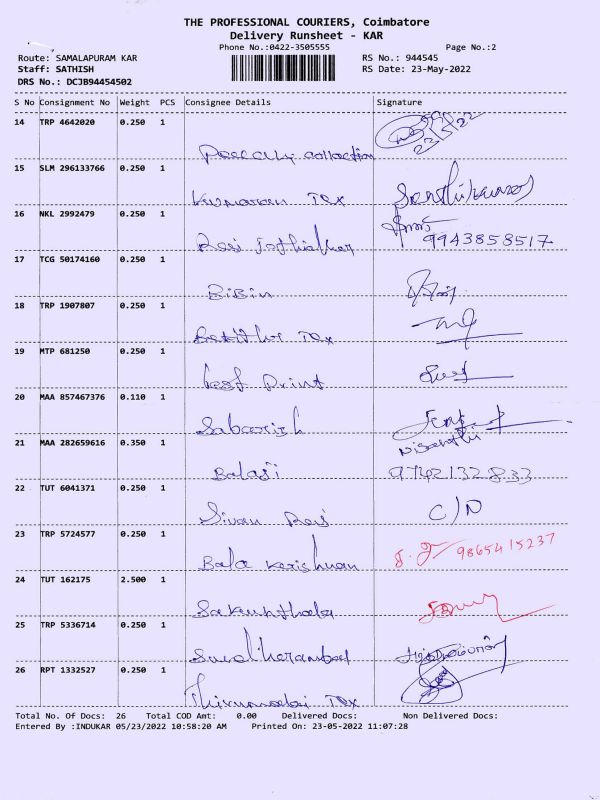 THE PROFESSIONAL COURIERS, Coimbatore
Delivery Runsheet - KAR
Phone No.:0422-3505555 Page No.:2
Route: SAMALAPURAM KAR RS No.: 944545
Staff: SATHISH RS Date: 23-May-2022
DRS No.: DCJB94454502
S No Consignment No Weight PCS Consignee Details Signature
14 TRP 4642020 0.250 1
collection
15 SLM 296133766 0.250 1
Kumaran Tex
16 NKL 2992479 0.250 1
Ravi 9943858517
17 TCG 50174160 0.250 1
BiBin
18 TRP 1907807 0.250 1
Tex
19 MTP 681250 0.250 1
Print
20 MAA 857467376 0.110 1
Sabarish
21 MAA 282659616 0.350 1 Nisanthi
Balaji 9742132833
22 TUT 6041371 0.250 1
Sivan C/N
23 TRP 5724577 0.250 1
Bala Kerishnan 9865415237
24 TUT 162175 2.500 1
Sakunthala
25 TRP 5336714 0.250 1
26 RPT 1332527 0.250 1
Thirumalai Tex
Total No. Of Docs: 26 Total COD Amt: 0.00 Delivered Docs: Non Delivered Docs:
Entered By :INDUKAR 05/23/2022 10:58:20 AM Printed On: 23-05-2022 11:07:28